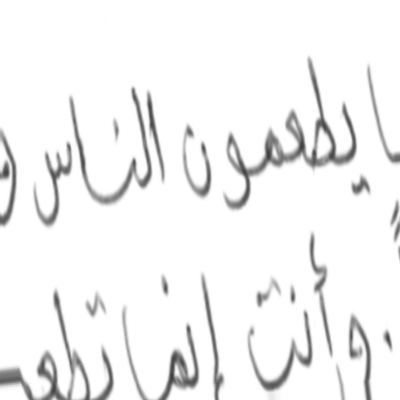 يطعمون الناس
وأنت إنما تطعم